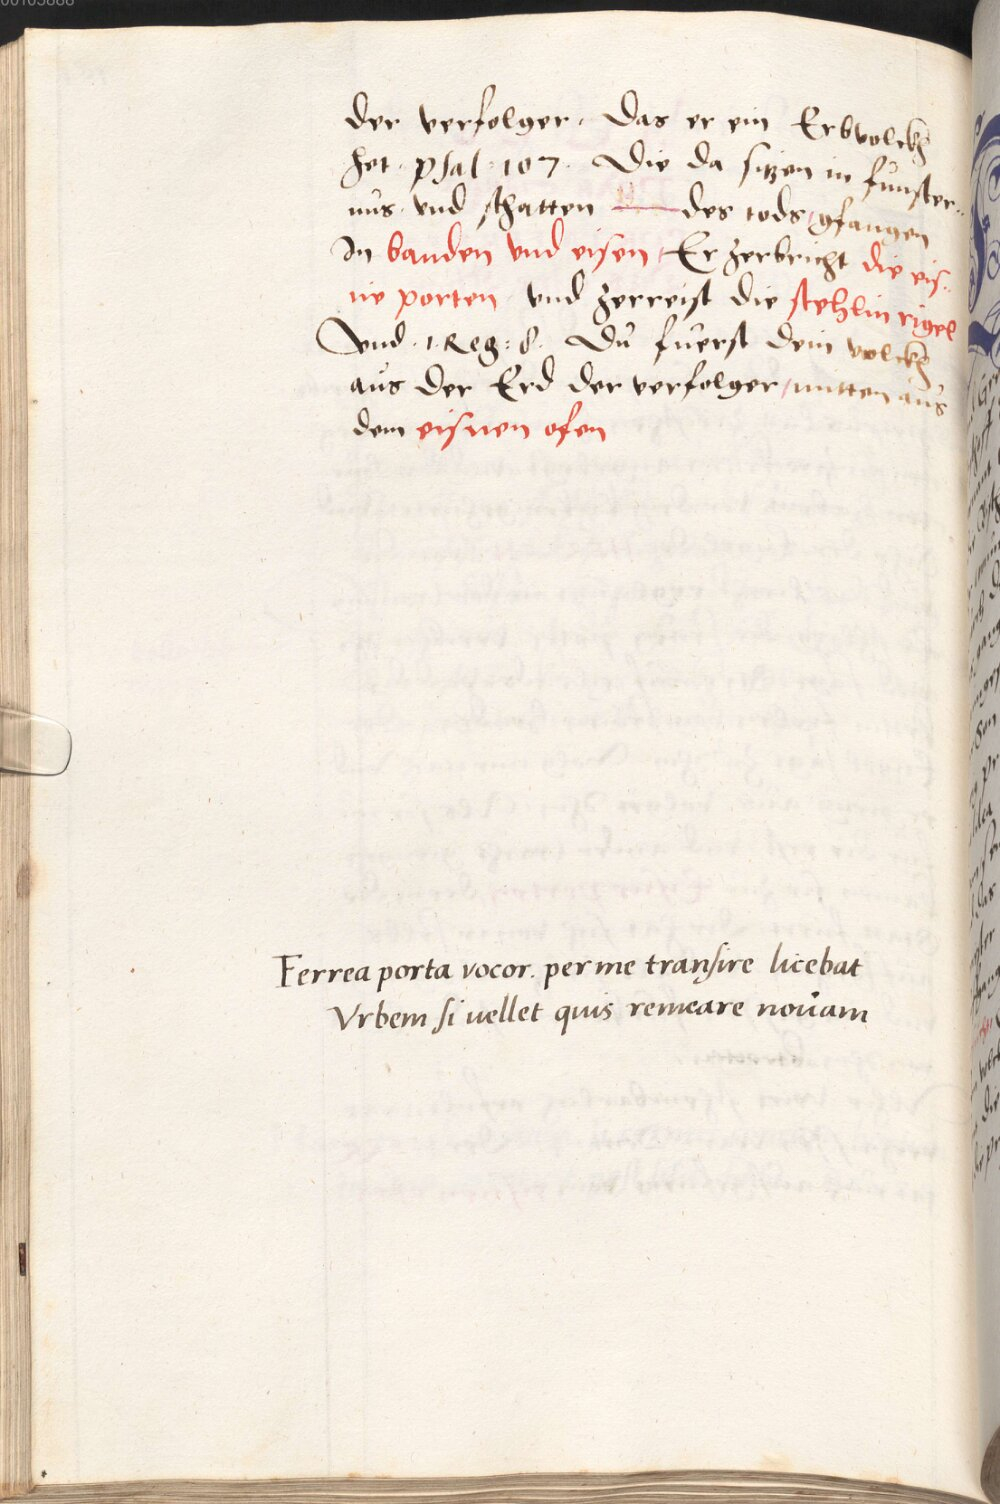 der verfolger. Das er ein Erbvolckh
het. psal. 107. Die da sitzen in funster-
nus. vnd schatten des tods, gfangen
In banden vnd eisen, Er zerbricht die eis-
nie porten, vnd zerreist die stehlin rigel
Vnd. 1. Reg: 8. Du fuerst dein volckh
aus der Erd der verfolger, mitten aus
dem eisnen ofen
Ferrea porta vocor. per me transire licebat
Vrbem si uellet quis remeare nouam